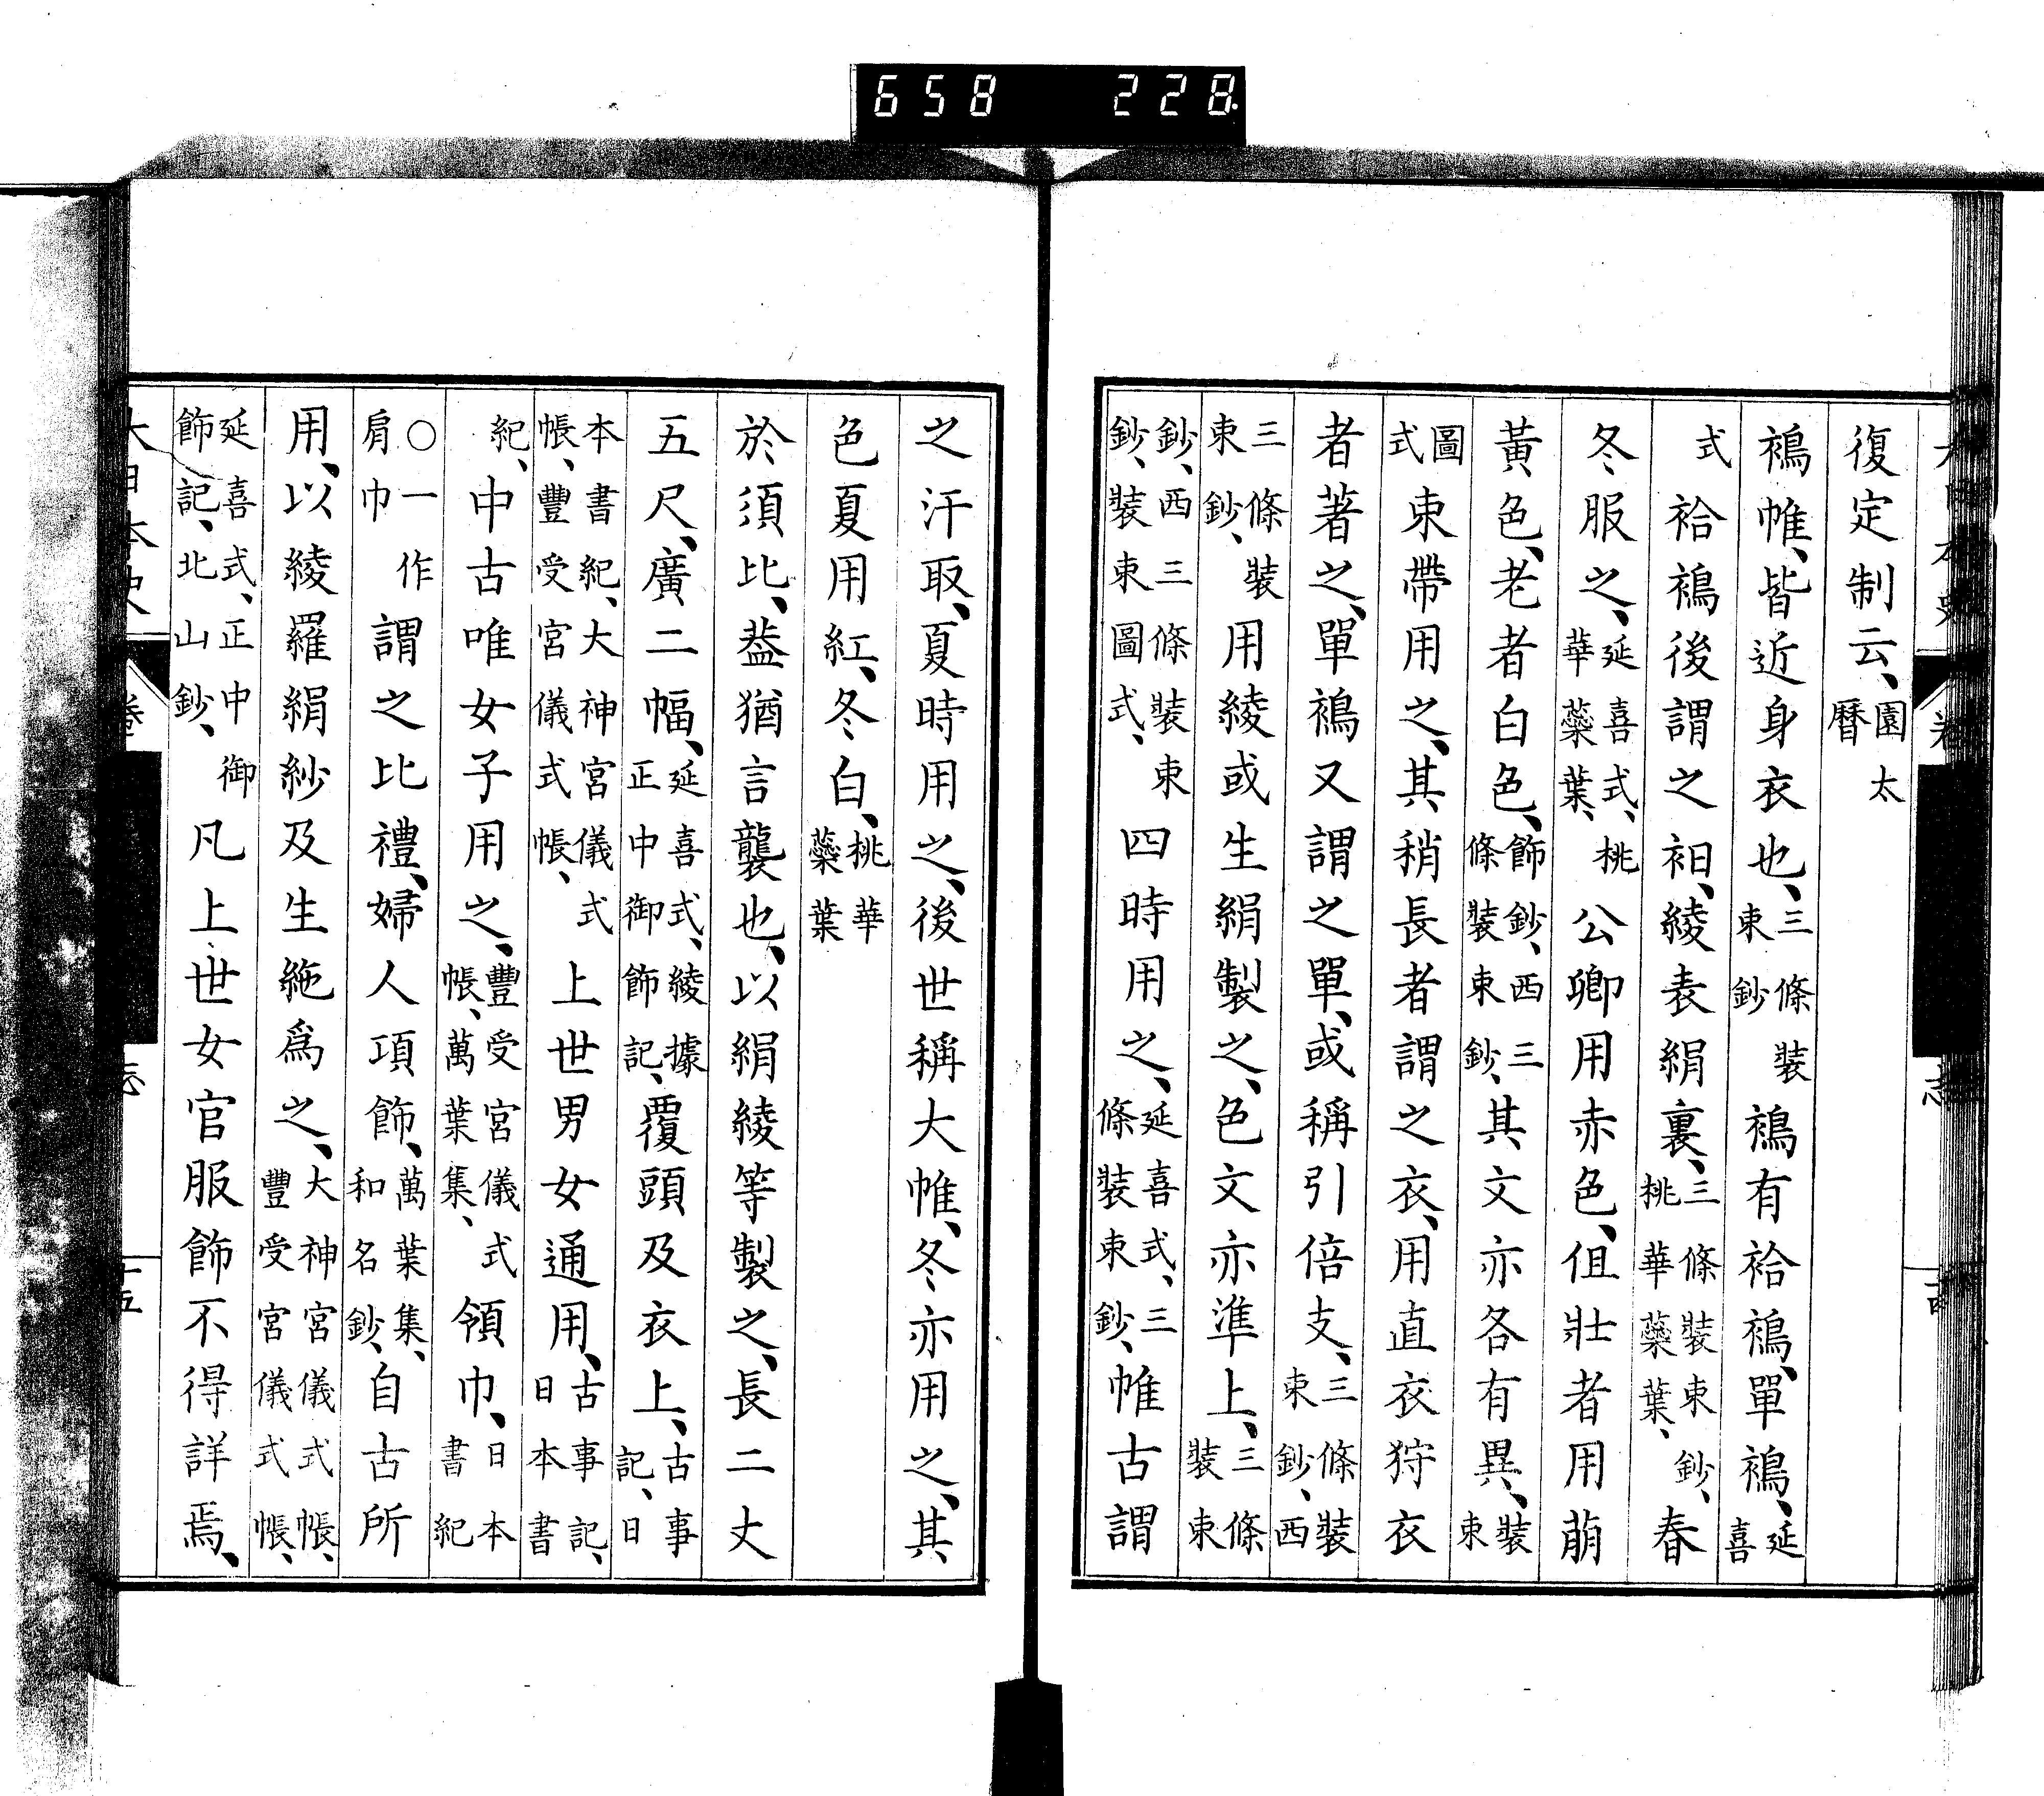 658 228
復定制云、園太曆
襁帷、皆近身衣也、三條裝束鈔襁有袷襁、單襁、延喜
式袷襁後謂之衵、綾表絹裏、三條裝束鈔、桃華蘂葉、春
冬服之、延喜式、桃華蘂葉、公卿用赤色、但壯者用萠
黃色、老者白色、飾鈔、西三條裝束鈔、其文亦各有異、裝束
圖式束帶用之、其稍長者謂之衣、用直衣狩衣
者著之、單襁又謂之單、或稱引倍支、三條裝束鈔、西
三條裝束鈔、用綾或生絹製之、色文亦準上、三條裝束
鈔、西三條裝束鈔、裝束圖式、四時用之、延喜式、三條裝束鈔、帷古謂
之汗取、夏時用之、後世稱大帷、冬亦用之、其
色夏用紅、冬白、桃華蘂葉
於須比、葢猶言襲也、以絹綾等製之、長二丈
五尺、廣二幅、延喜式、綾據正中御飾記、覆頭及衣上、古事記、日
本書紀、大神宮儀式帳、豐受宮儀式帳、上世男女通用、古事記、日本書
紀、中古唯女子用之、豐受宮儀式帳、萬葉集、領巾、日本書紀
○一作肩巾謂之比禮、婦人項飾、萬葉集、和名鈔、自古所
用、以綾羅絹紗及生絁爲之、大神宮儀式帳、豐受宮儀式帳、
延喜式、正中御飾記、北山鈔、凡上世女官服飾不得詳焉、
大日本史 卷 志 十五